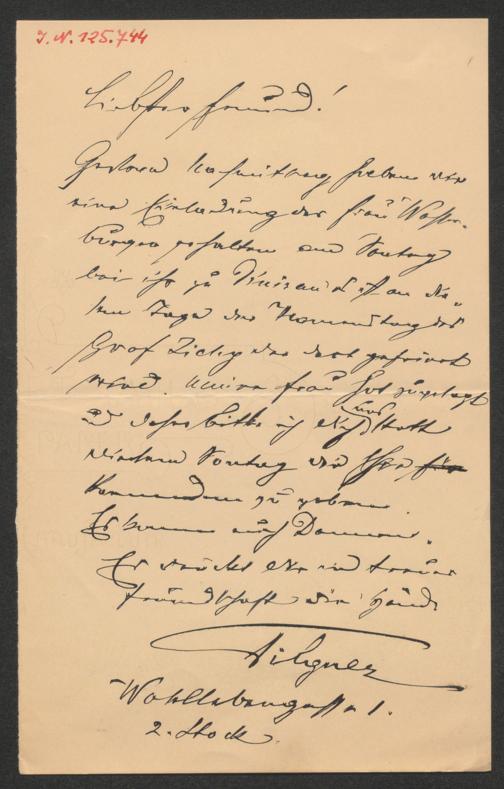 I. N. 125.744
Liebster Freund!
Gestern Nachmittag haben wir
eine Einladung der Frau Wasser-
burger erhalten am Sontag
bei ihr zu Diniren es ist an die-
sem Tage der Namenstag des
Graf Zichy der dort gefeiert
wird. Meine Frau hat zugesagt
und daher bitte ich dich uns statt
diesem Sontag die Ehre für
kommenden zu geben.
Es kommen auch Damen.
Es drückt dir in treuer
Freundschaft die Hände
Tilgner
Wohllebengasse 1.
2. Stock